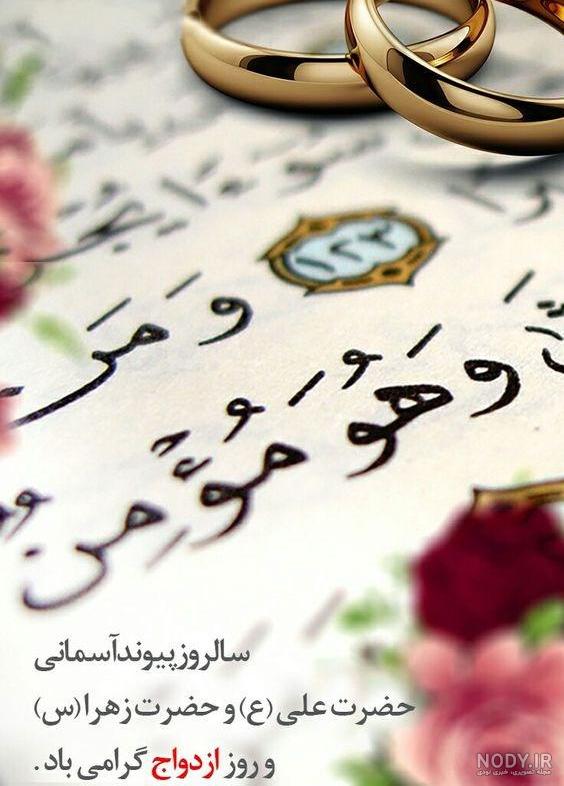 سُوءًا
۱۲۳
وَ مَن
وَهُوَ مُؤْمِنٌ
سالروز پیوند آسمانی
حضرت علی (ع) و حضرت زهرا (س)
و روز ازدواج گرامی باد .
NODY.IR
مجله تصویری، خبری نودی